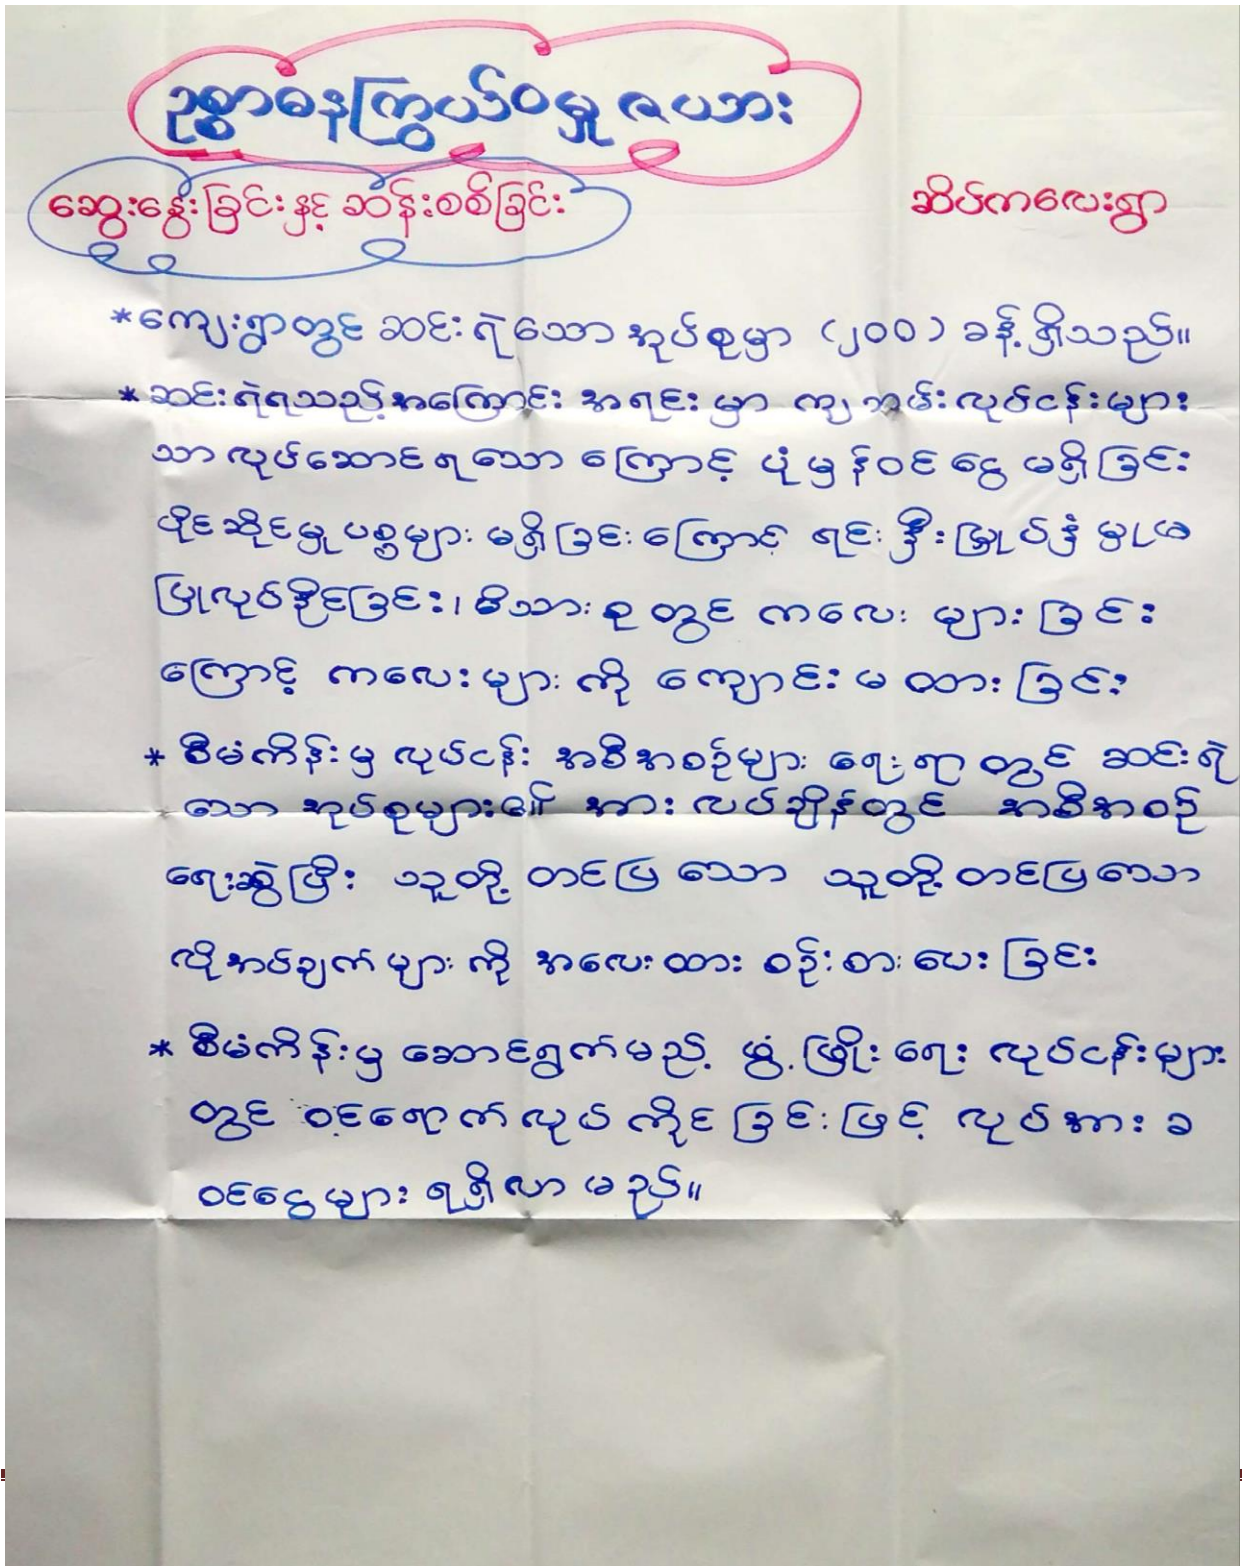 ဥစ္စာဓနကြွယ်ဝမှု ဇယား
ဆွေးနွေးခြင်းနှင့် ဆန်းစစ်ခြင်း ဆိပ်ကလေးရွာ
* ကျေးရွာတွင် ဆင်းရဲသော အုပ်စုမှာ (၂၀၀) ခန့်ရှိသည်။
* ဆင်းရဲရသည့်အကြောင်း အရင်းမှာ ကျဘမ်းလုပ်ငန်းများ
သာ လုပ်ဆောင်ရသောကြောင့် ပုံမှန်ဝင်ငွေ မရှိခြင်း
ပိုင်ဆိုင်မှုပစ္စများ မရှိခြင်းကြောင့် ရင်းနှီးမြှုပ်နှံမှုမ
ပြုလုပ်နိုင်ခြင်း၊ မိသားစုတွင် ကလေးများခြင်း
ကြောင့် ကလေးများကို ကျောင်းမထားခြင်း
* စီမံကိန်းမှ လုပ်ငန်း အစီအစဉ်များ ရေးရာတွင် ဆင်းရဲ
သော အုပ်စုများ၏ အားလပ်ချိန်တွင် အစီအစဉ်
ရေးဆွဲပြီး သူတို့ တင်ပြသော သူတို့ တင်ပြသော
လိုအပ်ချက်များကို အလေးထား စဉ်းစားပေးခြင်း
* စီမံကိန်းမှ ဆောင်ရွက်မည့် ဖွံ့ဖြိုးရေး လုပ်ငန်းများ
တွင် ဝင်ရောက်လုပ်ကိုင်ခြင်းဖြင့် လုပ်အားခ
ဝင်ငွေများ ရရှိလာမည်။